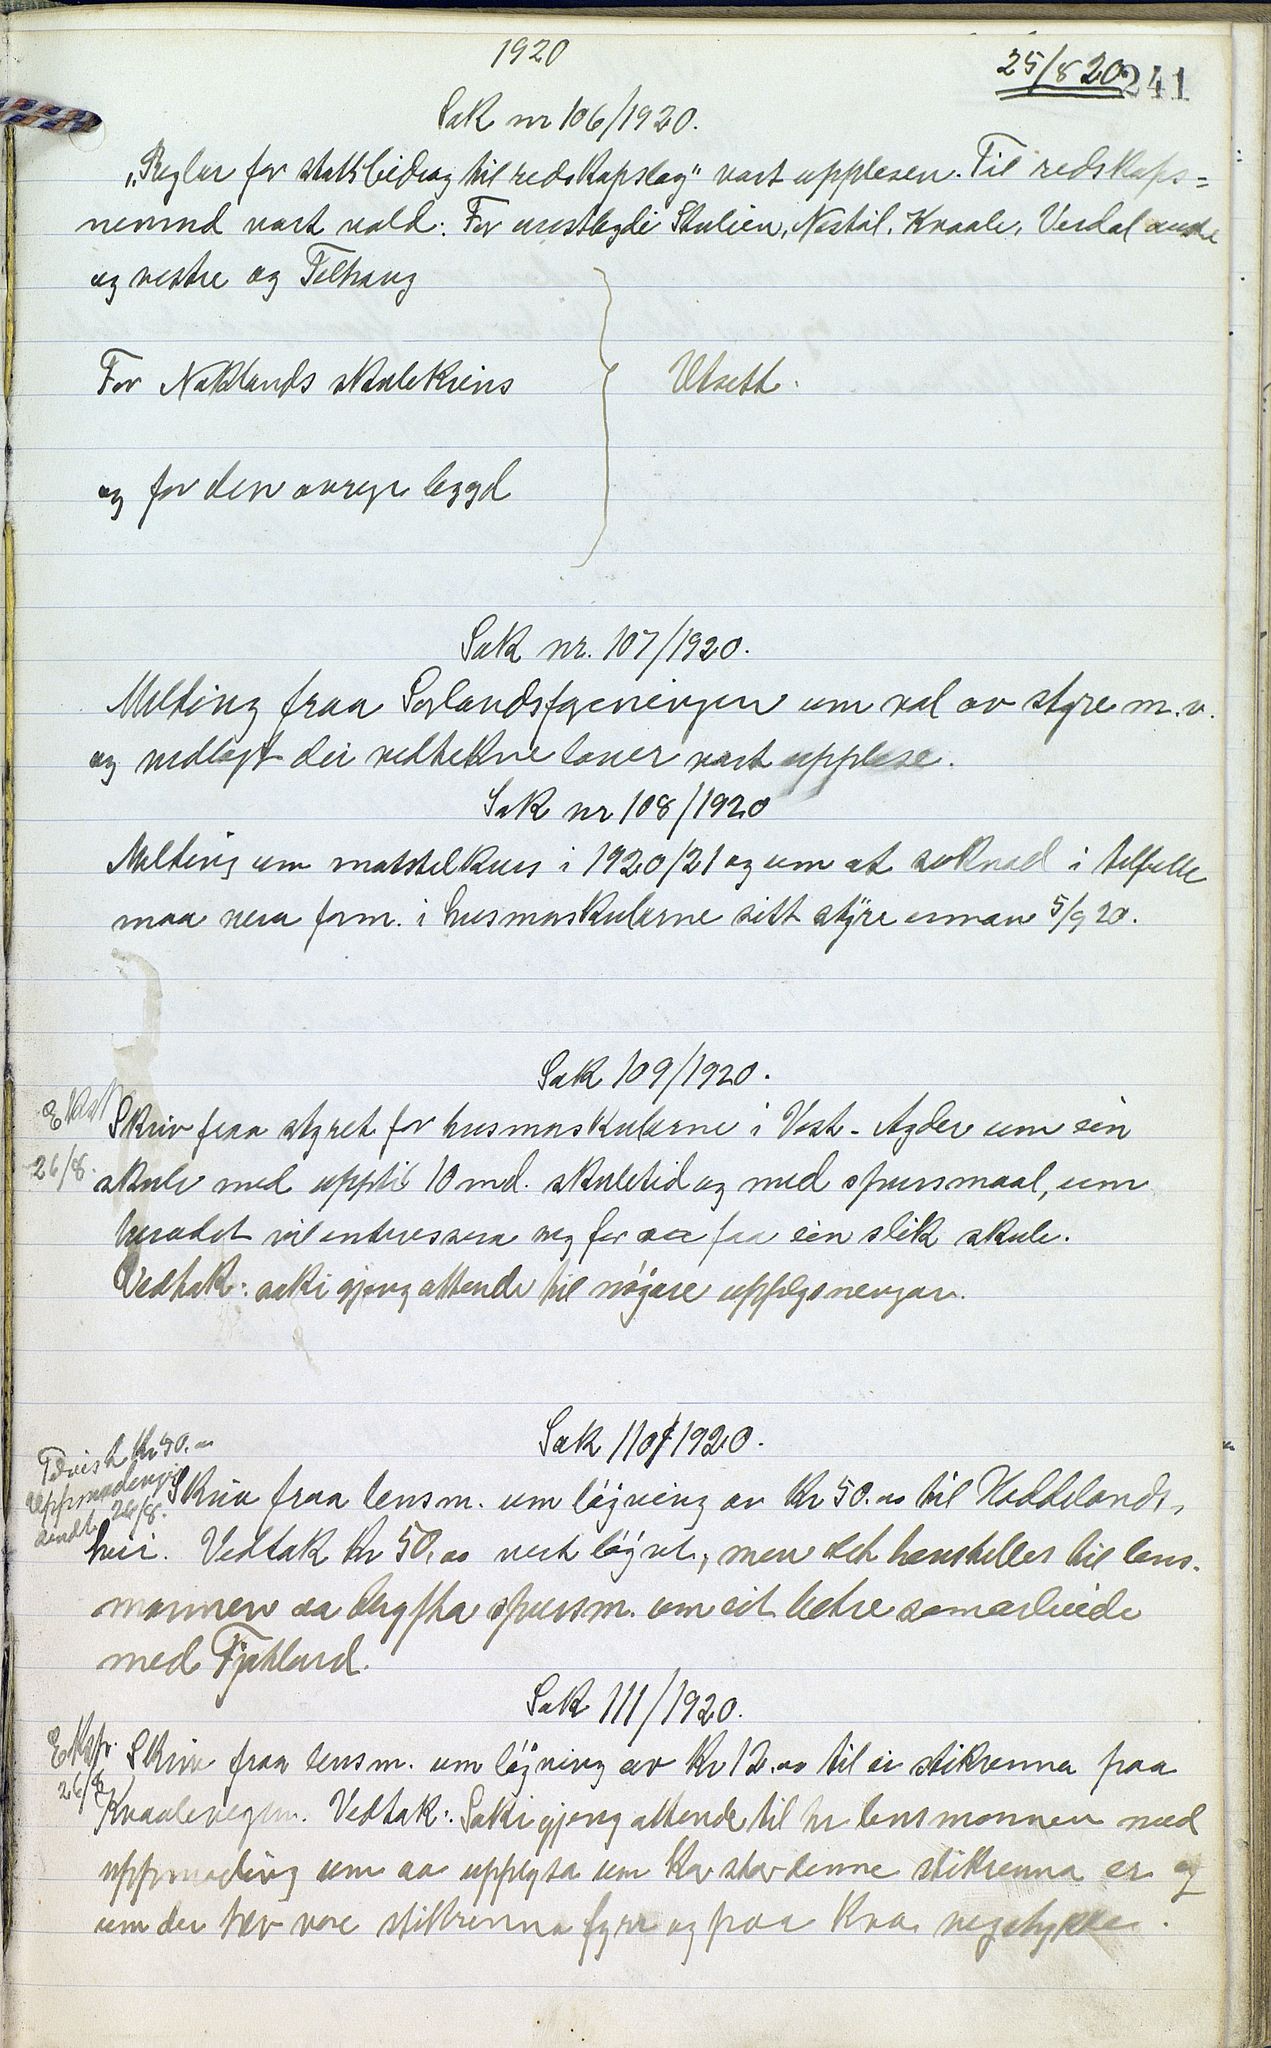 1920
25/8 20. 241
Sak nr 106/1920.
"Reglar for statsbidrag til redskapslag" vart upplesen. Til redskaps=
nemnd vart vald: For austbygdi Skulien, Kvaale, Verdal
og vestre og Tolhaug
For Naklands skulekrins
Utsett.
og for den bygd
Sak nr. 107/1920.
Melding fraa Sørlandsforeningen um val av styre m.v.
og vedlagt dei vedtekne lover vart upplese.
Sak nr 108/1920
Melding um matstelkurs i 1920/21 og um at søknad i tilfelle
maa vera form. i husmorskularne sitt styre innan 5/9 20.
Sak 109/1920.
Eksp
26/8.
Skriv fraa styret for husmorskularne i Vest-Agder um ein
skule med upptil 10 md. skuletid og med spursmaal, um
heradet vil interessera seg for aa faa ein slik skule.
Vedtak: saki gjeng attende til nøgare upplysningar.
Sak 110/1920.
Kr 50.00
uppmodingi
sendt 26/8.
Skriv fraa lensm. um løyving av Kr 50.00 til Haddelands-
heii. Vedtak Kr 50,00 vert løyvt, men det henstilles til lens-
mannen aa drøfta spursm. um eit betre samarbeide
med Fjotland.
Sak 111/1920.
Eksp.
26/8
Skriv fraa lensm. um løyving av Kr 12.00 til ei stikrenna paa
Kvaalevegen. Vedtak: Saki gjeng attende til hr lensmannen med
uppmoding um aa upplysa um kor stor denne stikrenna er og
um der hev vore stikrenna fyrr og paa kva vegstykke.